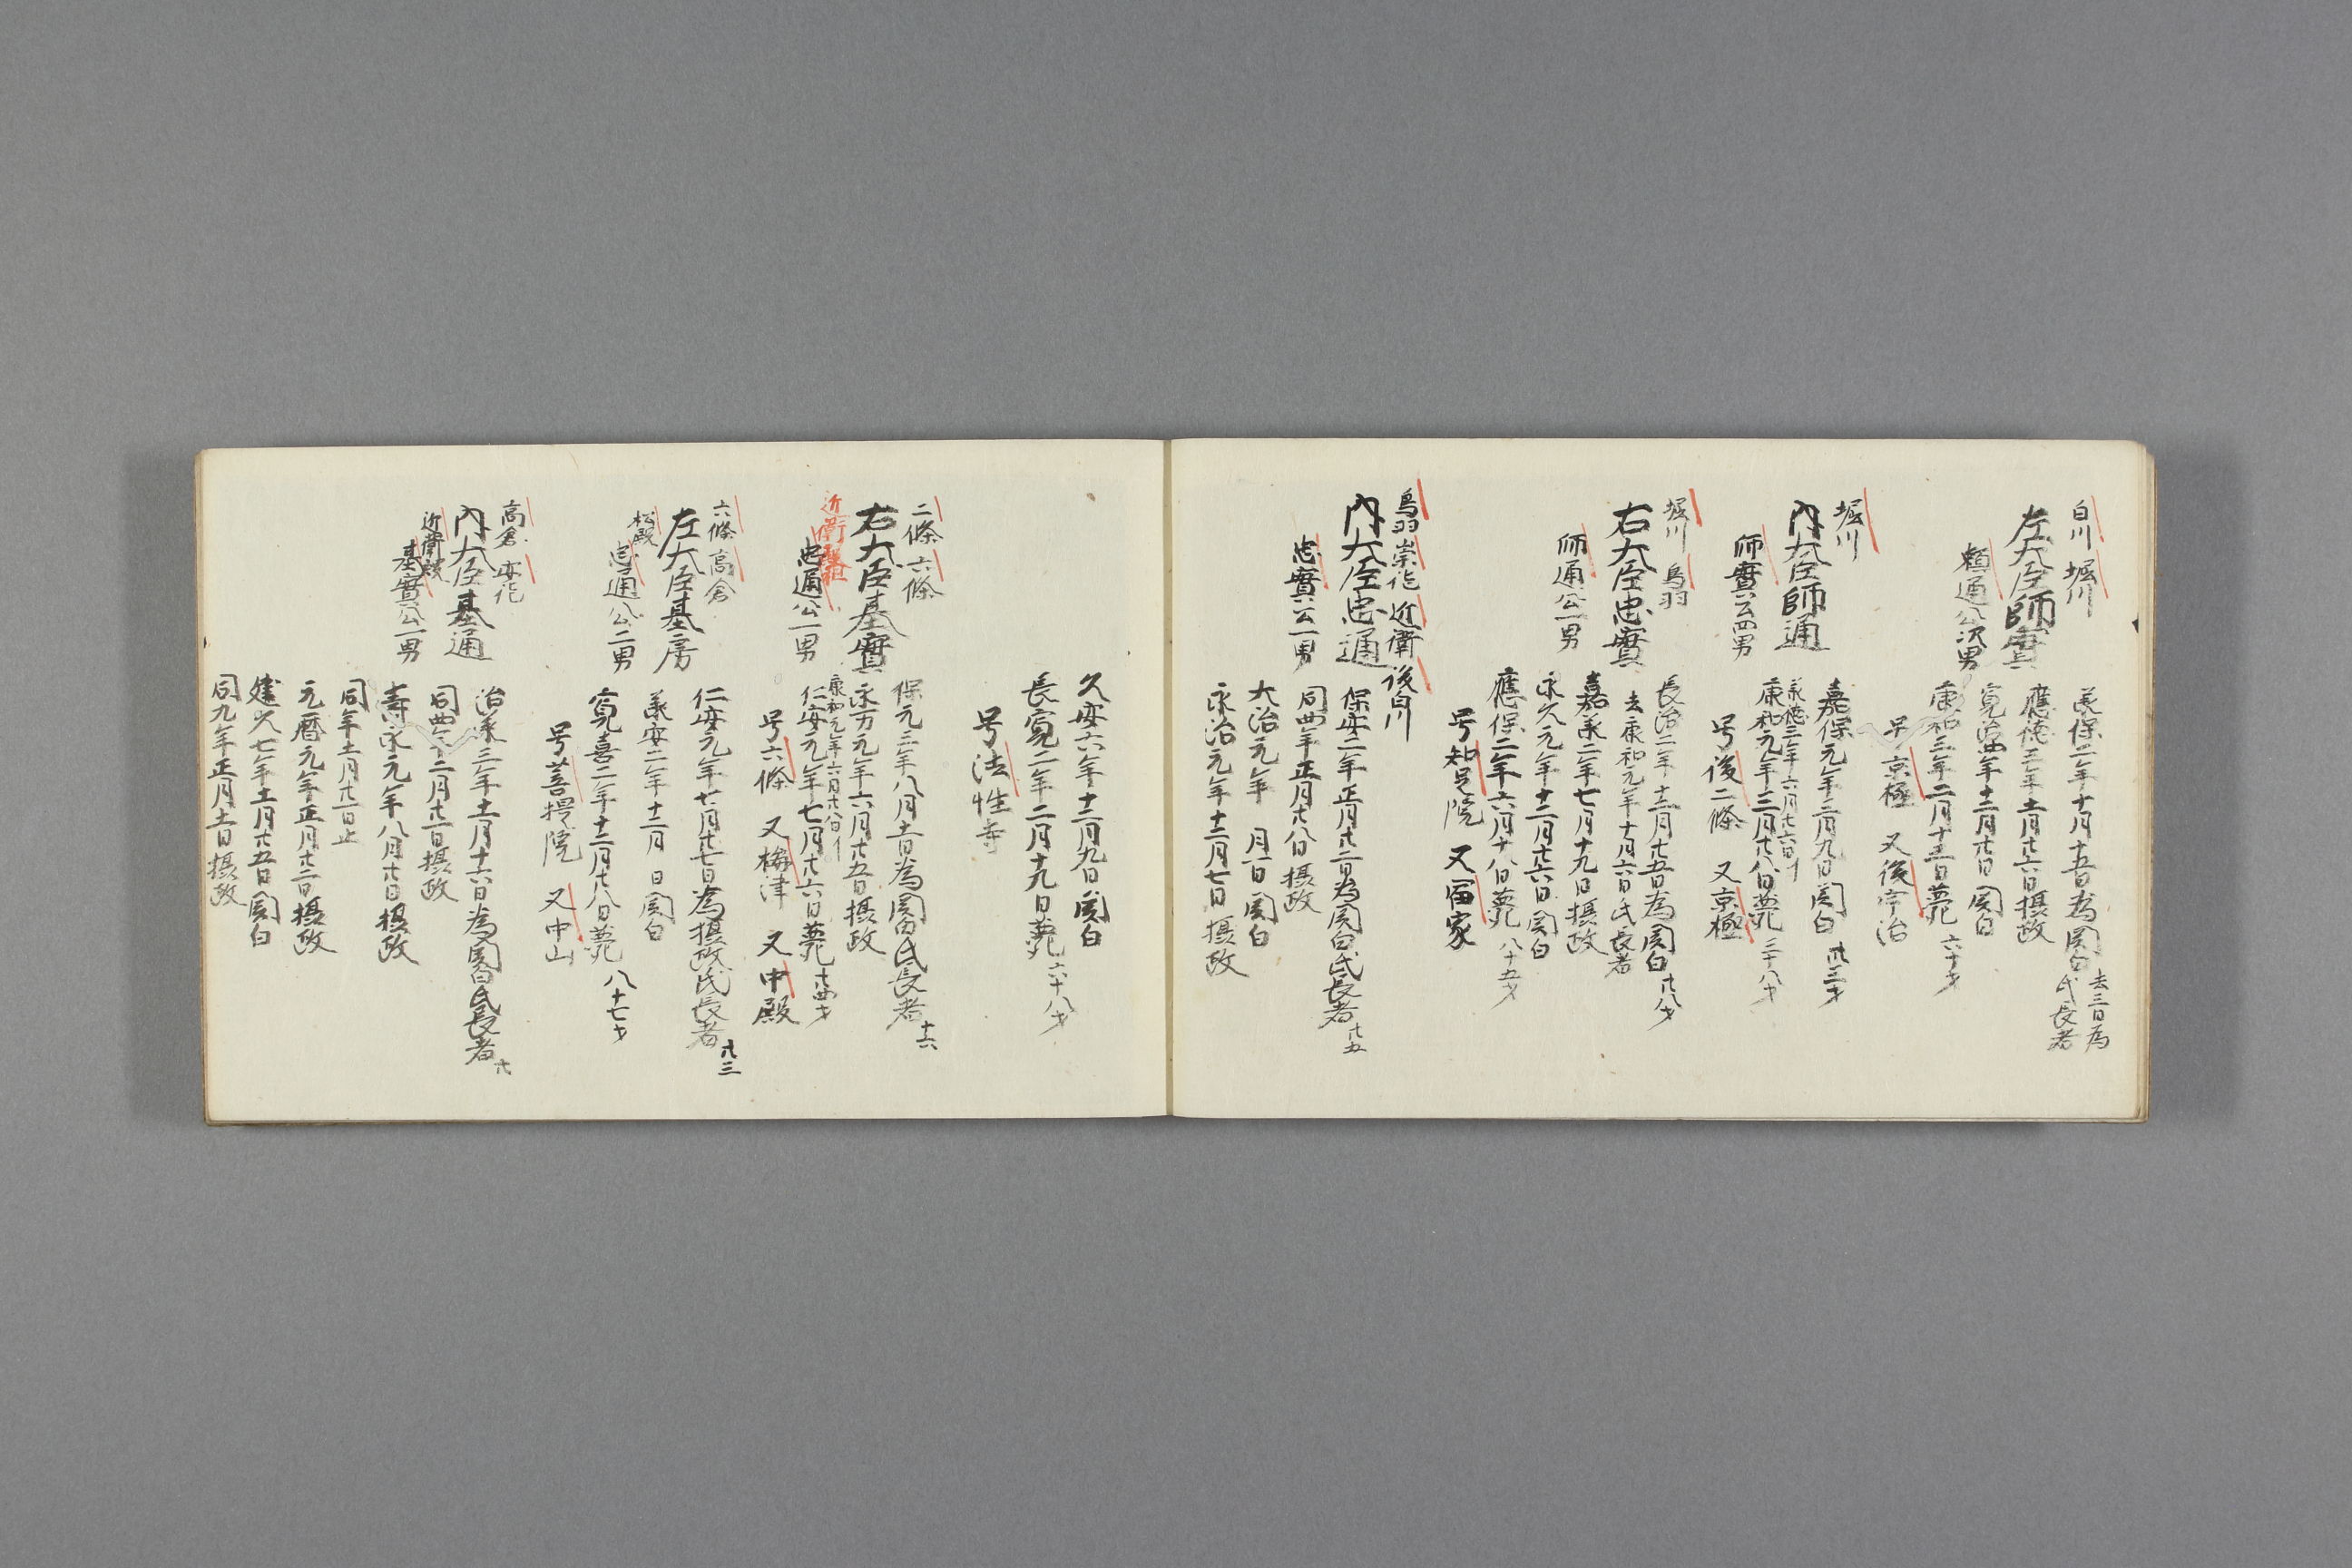 白川 堀川
左大臣師實
頼通公次男
承保二年十月十五日為関白 去三日為
氏長者
應徳三年十一月廿六日摂政
寛治四年十二月廿日関白
康和三年二月十三日薨 六十才
号京極 又後宇治
堀川
内大臣師通
師實公四男
嘉保元年三月九日関白 卅三才
承徳三年六月廿六日イ
康和元年六月廿八日薨 三十八才
号後二條 又京極
堀川 鳥羽
右大臣忠實
師通公一男
長治二年十二月廿五日為関白 廿八才
去康和元年十月六日氏長者
嘉承二年七月十九日摂政
永久元年十二月廿六日関白
應保二年六月十八日薨 八十五才
号知足院 又冨家
鳥羽 崇徳 近衛 後白川
内大臣忠通
忠實公一男
保安二年正月廿二日為関白氏長者 廿五
同四年正月廿八日摂政
大治元年 月一日関白
永治元年十二月七日摂政
久安六年十二月九日関白
長寛二年二月十九日薨 六十八才
号法性寺
二條 六條
右大臣基實
近衛殿祖
忠通公一男
保元三年八月十一日為関白氏長者 十六
永万元年六月廿五日摂政
康和元年六月廿八日イ
仁安元年七月廿六日薨 廿四才
号六條 又梅津 又中殿
六條 高倉
左大臣基房
松殿
忠通公二男
仁安元年七月廿七日為摂政氏長者 廿三
承安二年十二月 日関白
寛喜二年十二月廿八日薨 八十七才
号菩提院 又中山
高倉 安徳
内大臣基通
近衛殿
基實公一男
治承三年十一月十六日為関白氏長者 廿
同四年二月廿一日摂政
壽永元年八月廿日摂政
同年十一月廿一日止
元暦元年正月廿二日摂政
建久七年十一月廿五日関白
同九年正月十一日摂政